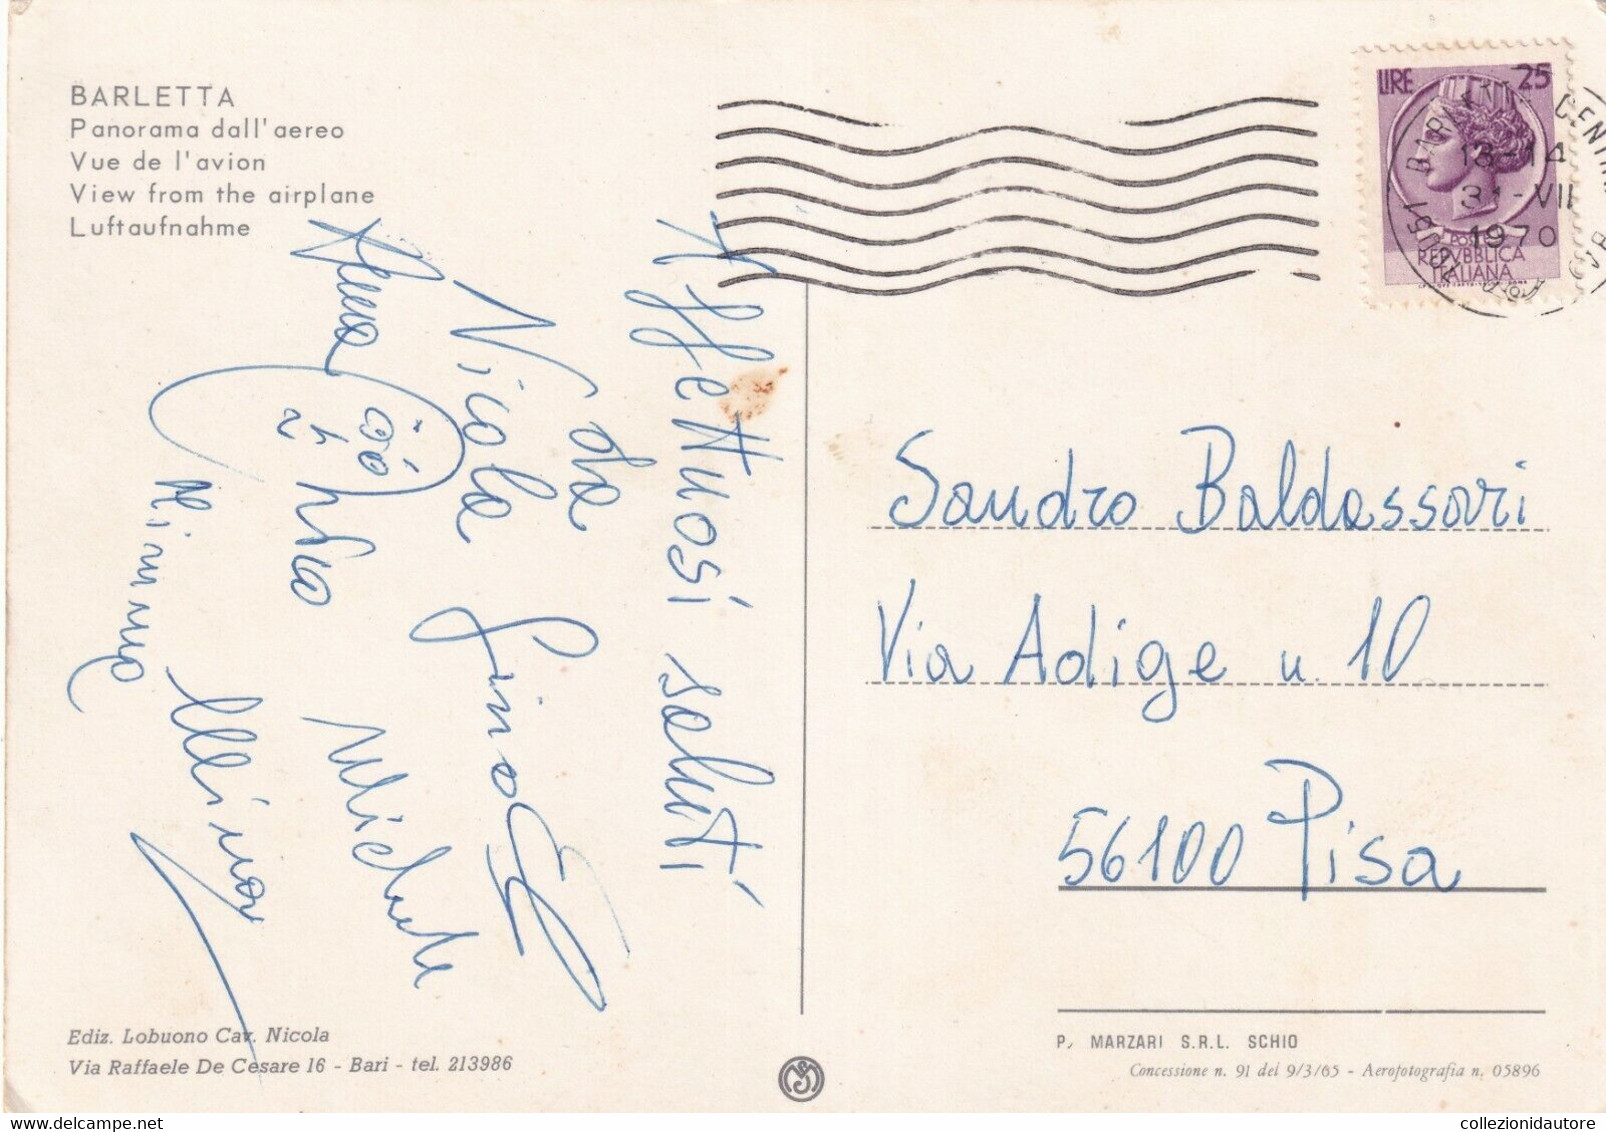 BARLETTA
Panorama dall'aereo
Vue de l'avion
View from the airplane
Luftaufnahme
Affettuosi saluti
da
Nicola Gino
Anna
Michele
Mimma
Ediz. Lobuono Cav. Nicola
Via Raffaele De Cesare 16 - Bari - tel. 213986
LIRE 25
POSTE
REPVBBLICA
ITALIANA
13-14
31-VII
1970
Sandro Baldassarri
Via Adige n. 10
56100 Pisa
P. MARZARI S.R.L. SCHIO
Concessione n. 91 del 9/3/65 - Aerofotografia n. 05896
collezionidautore